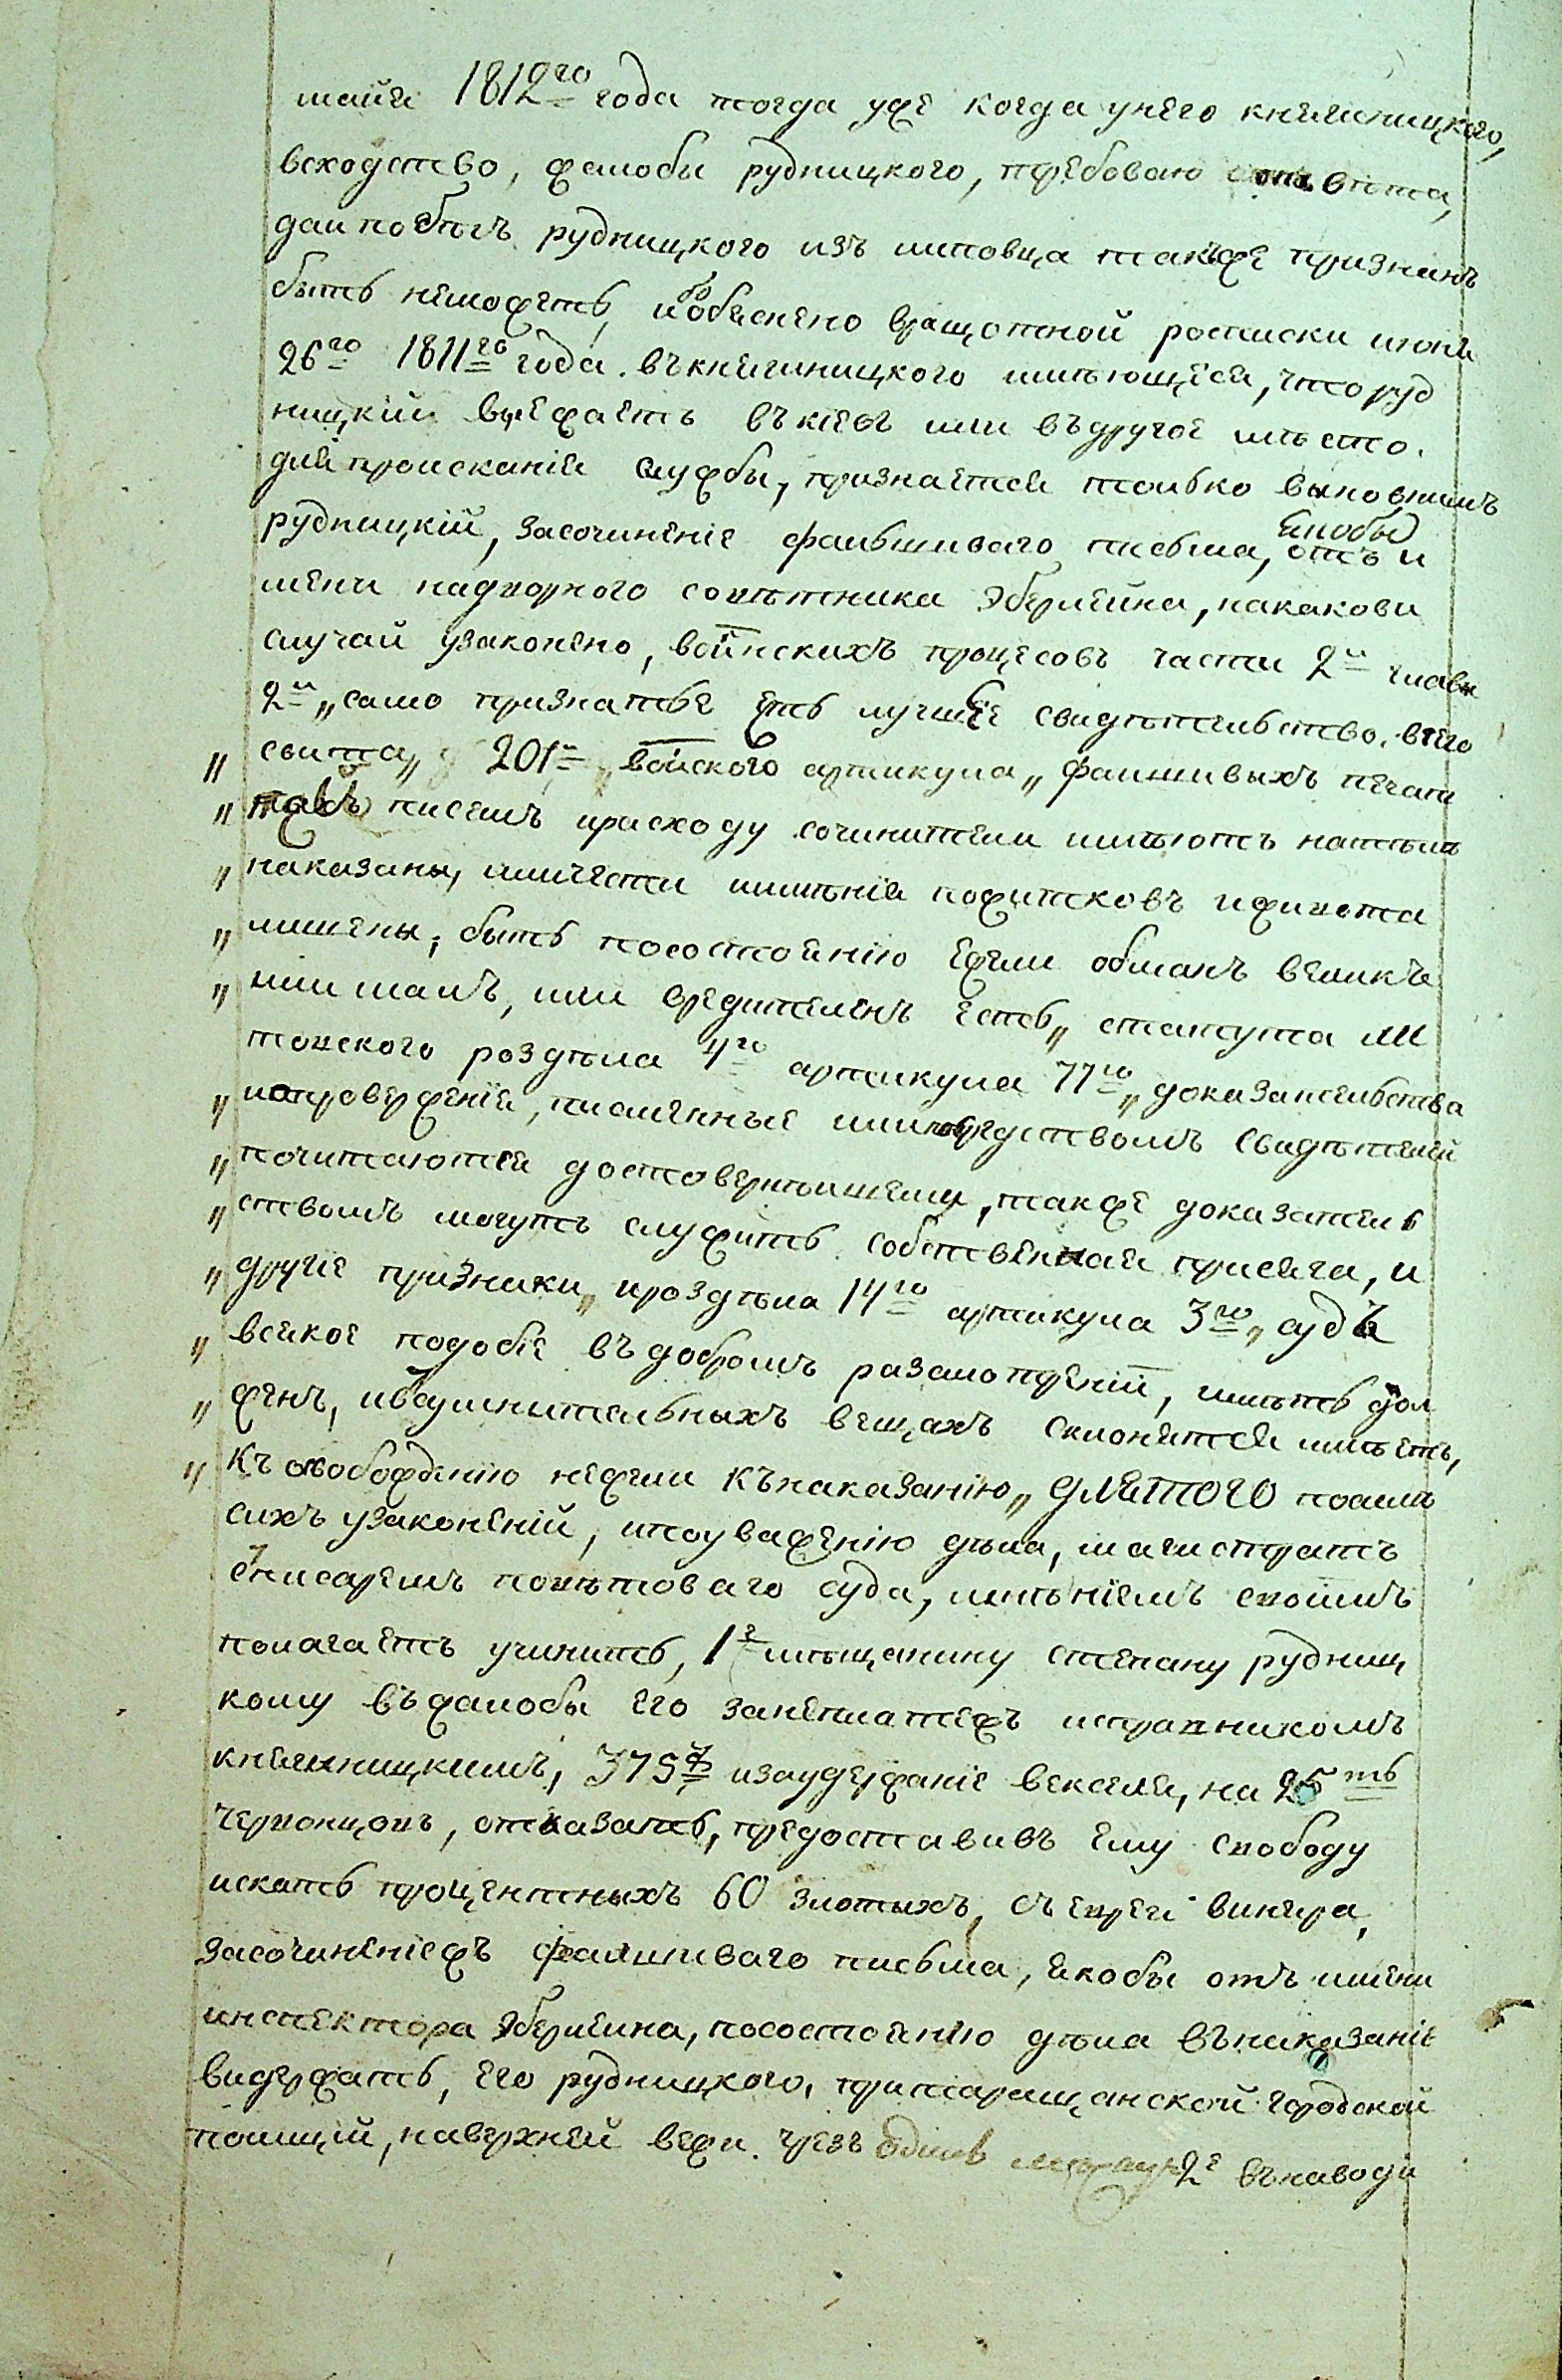 мая 1812го года тогда уже когда унего княгиницкого,
всходство, жалобы рудницкого, требовано ответа,
дал побегъ рудницкого изъ липовца также признанъ
быть неможетъ, ибо обяснено вращотной росписки июня
26го 1811го года въкнягиницкого имеющейся, что руд
ницкий вуежаетъ въ киевъ или въдругое место.
для происканія службы, признается только виновнымъ
рудницкій, засочиненіе фальшиваго письма, якобы отъ и
мени надворного советника Эберлейна, накакови
случай узаконено, воинскихъ процесовъ части 2й главы
2й „само признатье есть лучшее свидетельство. всего
„ свита„ 201й „войского артикула„ фалшивыхъ печати
„ писемъ ирасходу сочинители имеютъ нателе
„ наказаны, или чести именія пожитковъ иживота
„ лишены, быть посостоянію ежели обманъ великъ
„ или малъ, или вредителенъ есть„ статута ли
товского роздела 4го артикула 77го „доказательства
„ ипровержения, писменные или посредствомъ свидетелей
„ почитаются достовернейшему, также доказатель
„ ствомъ могутъ служить собственная присяга, и
„ другіе признаки„ ироздела 14го артикула 3го „судъ
„ всякое подобіе въ добромъ разсмотреніи, иметь дол
„ женъ, ивсумнительныхъ вещахъ склонятся иметъ,
„ къ освобожденію нежели къ наказанію„ длятого посиле
сихъ узаконеній, ипоуваженію дела, магистратъ
списаремъ поветоваго суда, мненіемъ своимъ
полагаетъ учинить, 1е мещанину степану рудниц
кому въжалобы его занеплатежъ исправникомъ
княгиницкимъ, 375 изаудержаніе векселя, на 25ть
червонцовъ, отказать, предоставивъ ему свободу
искать процентныхъ 60 злотыхъ, съеврея винера,
засочиненіежъ фалшиваго письма, якобы отъ имени
инспектора Эберлеина, посостоянію дела внаказаніе
видержать, его рудницкого, притаращанской городской
полиціи, наверхней вежи. чрезъ одинъ 2е